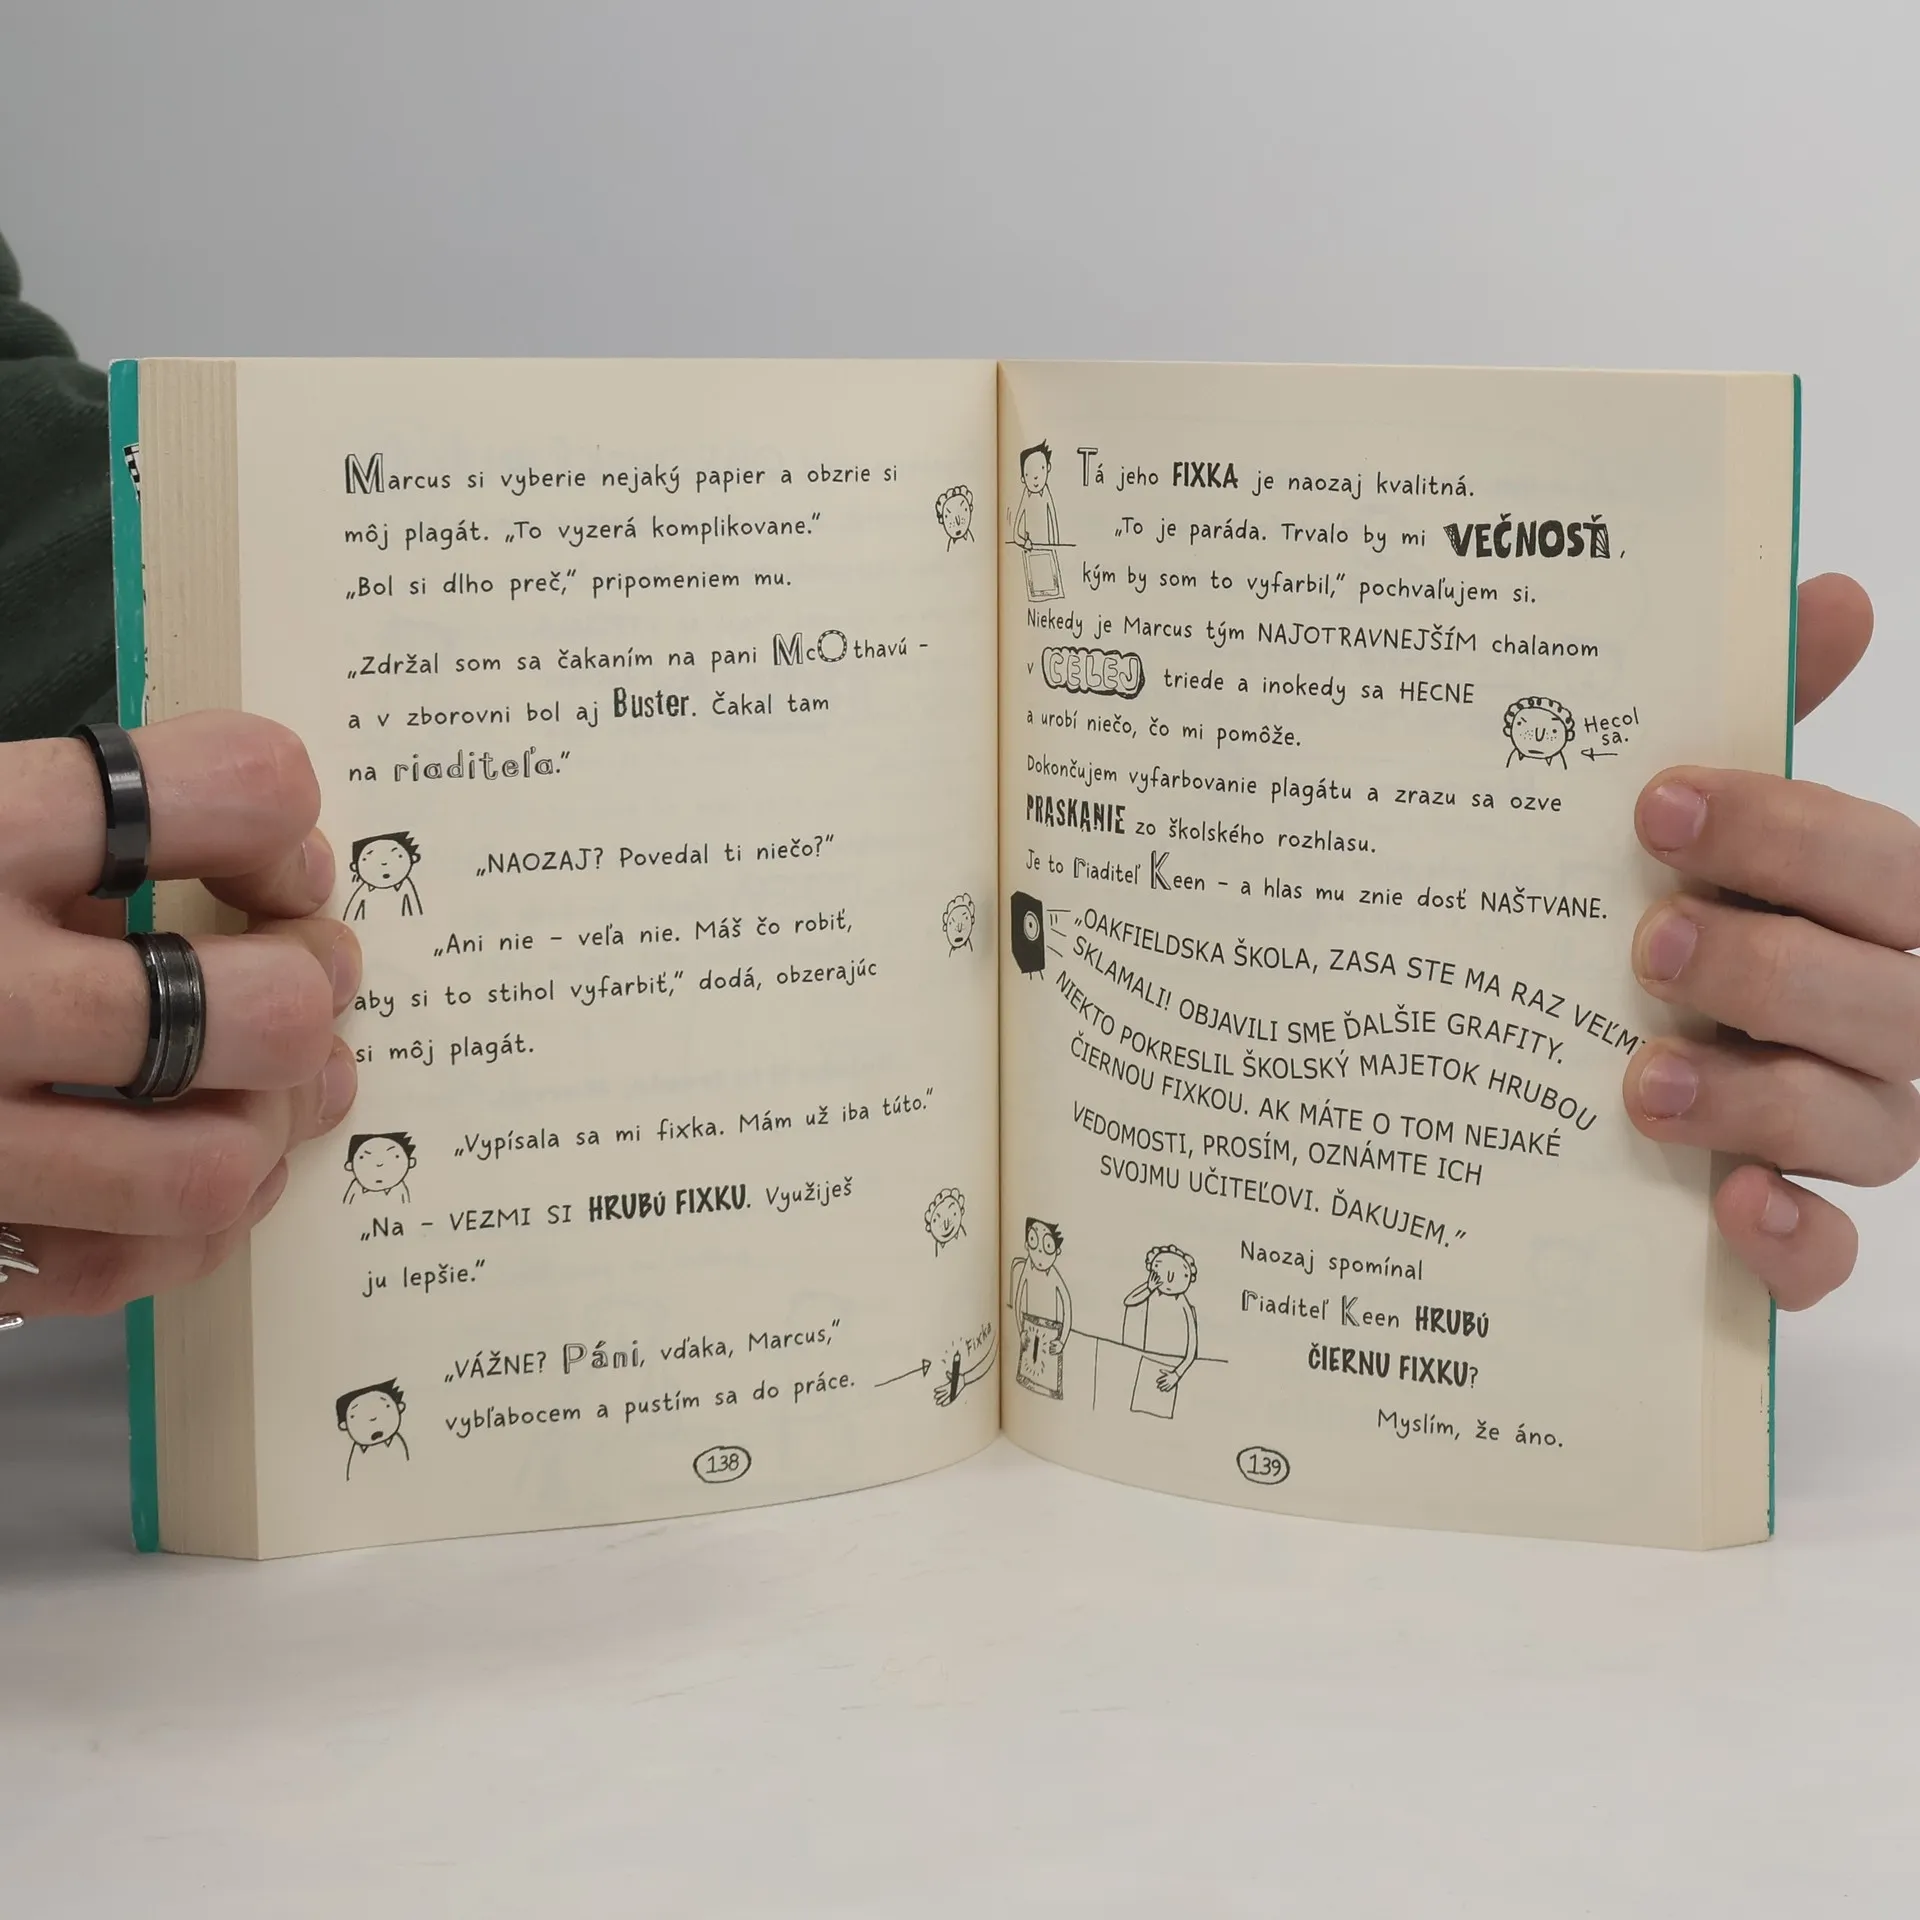 Marcus si vyberie nejaký papier a obzrie si
môj plagát. „To vyzerá komplikovane.“
„Bol si dlho preč,“ pripomeniem mu.
„Zdržal som sa čakaním na pani McOthavú –
a v zborovni bol aj Buster. Čakal tam
na riaditeľa.“
„NAOZAJ? Povedal ti niečo?“
„Ani nie – veľa nie. Máš čo robiť,
aby si to stihol vyfarbiť,“ dodá, obzerajúc
si môj plagát.
„Vypísala sa mi fixka. Mám už iba túto.“
„Na – VEZMI SI HRUBÚ FIXKU. Využiješ
ju lepšie.“
„VÁŽNE? Páni, vďaka, Marcus,“
vybľabocem a pustím sa do práce.
Fixka
138
Tá jeho FIXKA je naozaj kvalitná.
„To je paráda. Trvalo by mi VEČNOSŤ,
kým by som to vyfarbil,“ pochvaľujem si.
Niekedy je Marcus tým NAJOTRAVNEJŠÍM chalanom
v CELEJ triede a inokedy sa HECNE
a urobí niečo, čo mi pomôže.
Hecol
sa.
Dokončujem vyfarbovanie plagátu a zrazu sa ozve
PRASKANIE zo školského rozhlasu.
Je to riaditeľ Keen – a hlas mu znie dosť NAŠTVANE.
„OAKFIELDSKA ŠKOLA, ZASA STE MA RAZ VEĽMI
SKLAMALI! OBJAVILI SME ĎALŠIE GRAFITY.
NIEKTO POKRESLIL ŠKOLSKÝ MAJETOK HRUBOU
ČIERNOU FIXKOU. AK MÁTE O TOM NEJAKÉ
VEDOMOSTI, PROSÍM, OZNÁMTE ICH
SVOJMU UČITEĽOVI. ĎAKUJEM.“
Naozaj spomínal
riaditeľ Keen HRUBÚ
ČIERNU FIXKU?
Myslím, že áno.
139